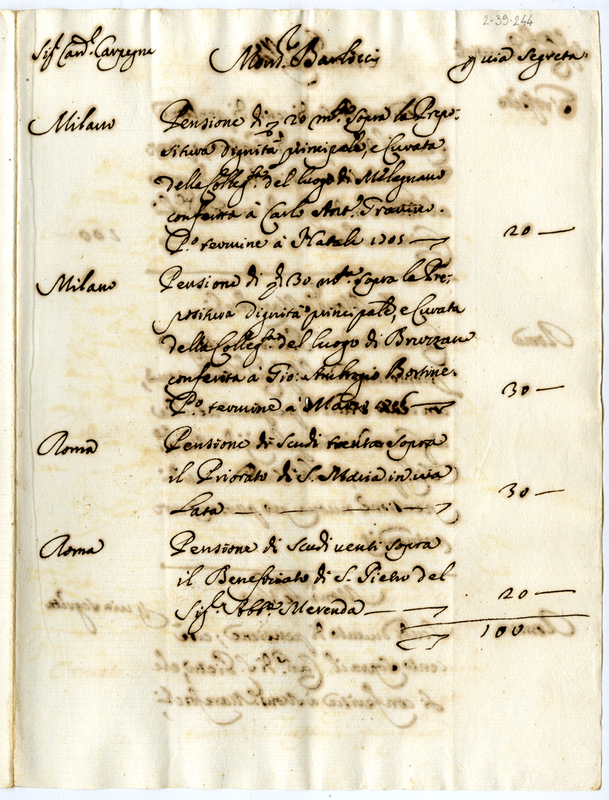 2-39-244
Sig.r Card. Carpegna Mons.r Barberi p via Segreta
Milano Pensione di 20 m.ta sopra la Prepo-
situra Dignità principale, e Curata
della Colleg.ta del luogo di Melegnano
conferita à Carlo Ant.o
P.o termine à Natale 1705 20
Milano Pensione di 30 m.ta sopra la Pre-
positura Dignità principale, e Curata
della Colleg.ta del luogo di Bruzzano
conferita à Gio: Ambrogio
P.o termine à 30
Roma Pensione di Scudi trenta sopra
il Priorato di S. Maria in via
Lata 30
Roma Pensione di scudi venti sopra
il Beneficiato di S. Pietro del
Sig.r Abb.e Merenda 20
100